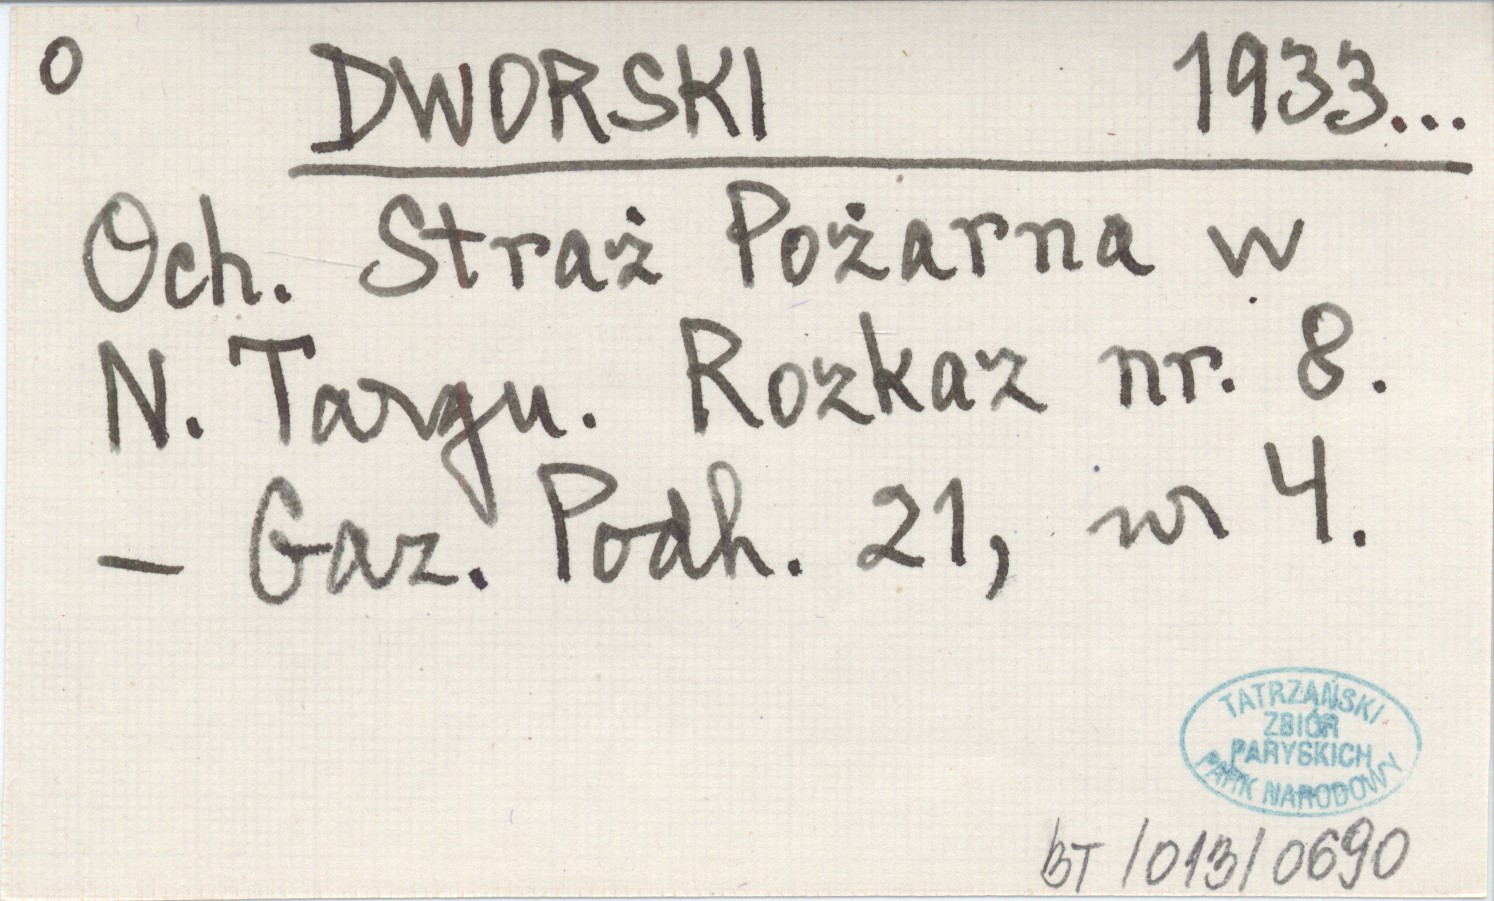 o DWORSKI 1933...
Och. Straż Pożarna w
N. Targu. Rozkaz nr. 8.
— Gaz. Podh. 21, nr 4.
TATRZAŃSKI
ZBIÓR
PARYSKICH
PARK NARODOWY
BT/013/0690